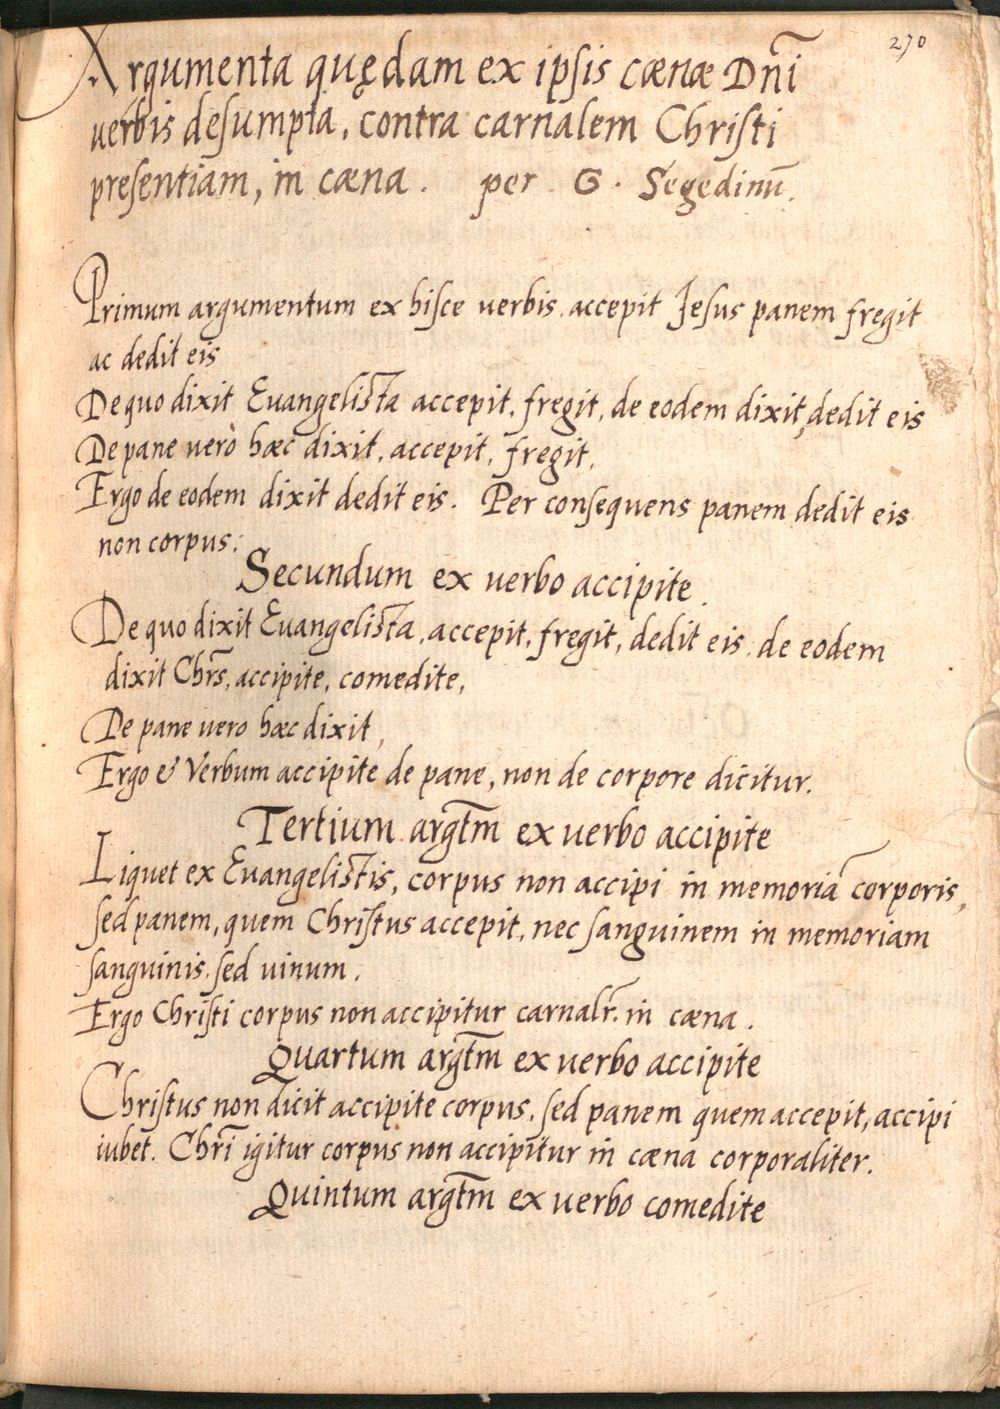 270
Argumenta quędam ex ipsis cœnæ Dñi
verbis desumpta, contra carnalem Christi
presentiam, in cœna. per G. Segedinū.
Primum argumentum ex hisce verbis. accepit Jesus panem fregit
ac dedit eis
De quo dixit Evangelista accepit, fregit, de eodem dixit, dedit eis
De pane verò hæc dixit, accepit, fregit,
Ergo de eodem dixit dedit eis. Per consequens panem dedit eis
non corpus.
Secundum ex verbo accipite.
De quo dixit Evangelista, accepit, fregit, dedit eis. de eodem
dixit Chr̄s, accipite, comedite,
De pane vero hæc dixit,
Ergo & Verbum accipite de pane, non de corpore dicitur.
Tertium argt̄m ex verbo accipite
Liquet ex Evangelistis, corpus non accipi in memoriā corporis,
sed panem, quem Christus accepit, nec sanguinem in memoriam
sanguinis. sed vinum.
Ergo Christi corpus non accipitur carnalr̄. in cœna.
Quartum argt̄m ex verbo accipite
Christus non dicit accipite corpus, sed panem quem accepit, accipi
iubet. Chrī igitur corpus non accipitur in cœna corporaliter.
Quintum argt̄m ex verbo comedite